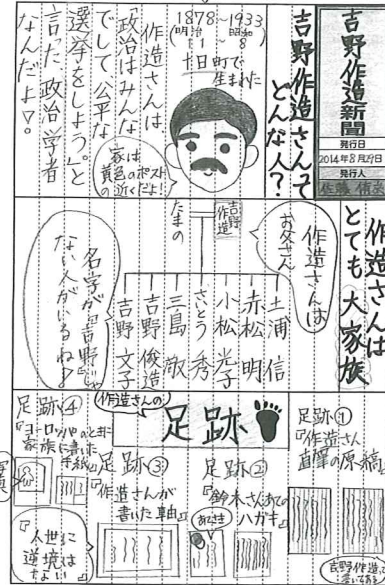 吉野作造新聞
発行日
2014年8月29日
発行人
吉野作造さんって
どんな人?
1878~1933
(明治11~昭和8)
十日町で
生まれた
作造さんは
「政治はみんな
でして公平な
選挙をしよう。」と
言った政治学者
なんだよ!。
家は
黄色のポスト
の近くだよ!
作造さんは
とても大家族
作造さんは
お父さん
吉野作造
たまの
土浦 信
赤松 明
小松 光子
さいとう 秀
三島 敬
吉野 俊造
吉野 文子
名字が「吉野」じゃ
ない人がいるね!
作造さんの
足跡
足跡①
『作造さん
直筆の原稿』
足跡②
『鈴木さんあての
ハガキ』
足跡③
『作造さんが
書いた軸』
足跡④
『ヨーロッパのときに
家族に書いた
手紙』
写真
『人世に
逆境は
ない』